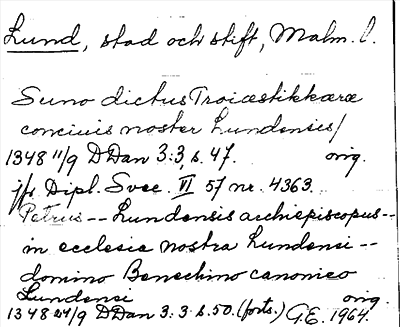 Lund, stad och stift, Malm. l.
Suno dictus Troiæstikkæræ
conciuis noster Lundensis/
1348 11/9 DDan 3:3, s. 47. orig.
jfr Dipl. Svec. VI 57 nr. 4363.
Petrus -- Lundensis archiepiscopus --
in ecclesia nostra Lundensi --
domino Benechino canonico
Lundensi orig.
1348 24/9 DDan 3:3 s. 50. (forts.) G.E. 1964.